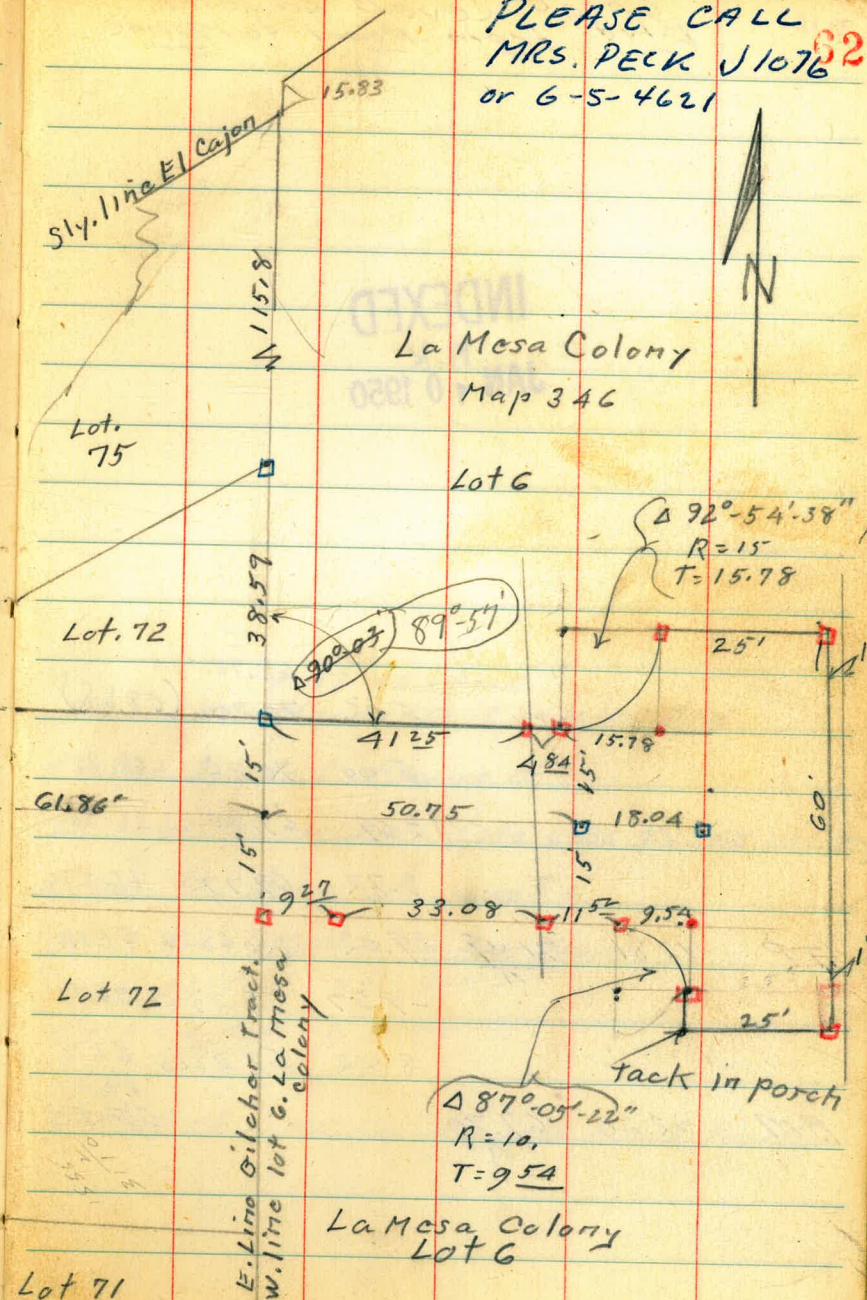 PLEASE CALL
MRS. PECK J1076
or 6-5-4621
62
15.83
Sly. line El Cajon
115.8
N
INDEXED
JAN 1950
La Mesa Colony
Map 346
Lot.
75
Lot 6
Δ 92°-54'-38"
R=15
T=15.78
38.59
Lot. 72
Δ 90°-03'
89°-57'
25'
1'
41 25
4 84
15.78
15'
15'
61.86'
50.75
18.04
60'
15'
15'
9 27
33.08
11 52
9.54
1'
Lot 72
25'
tack in porch
Δ 87°-05'-22"
R=10.
T=9 54
E. Line Gilcher Tract.
W. line lot 6. La Mesa
colony
La Mesa Colony
Lot 6
Lot 71